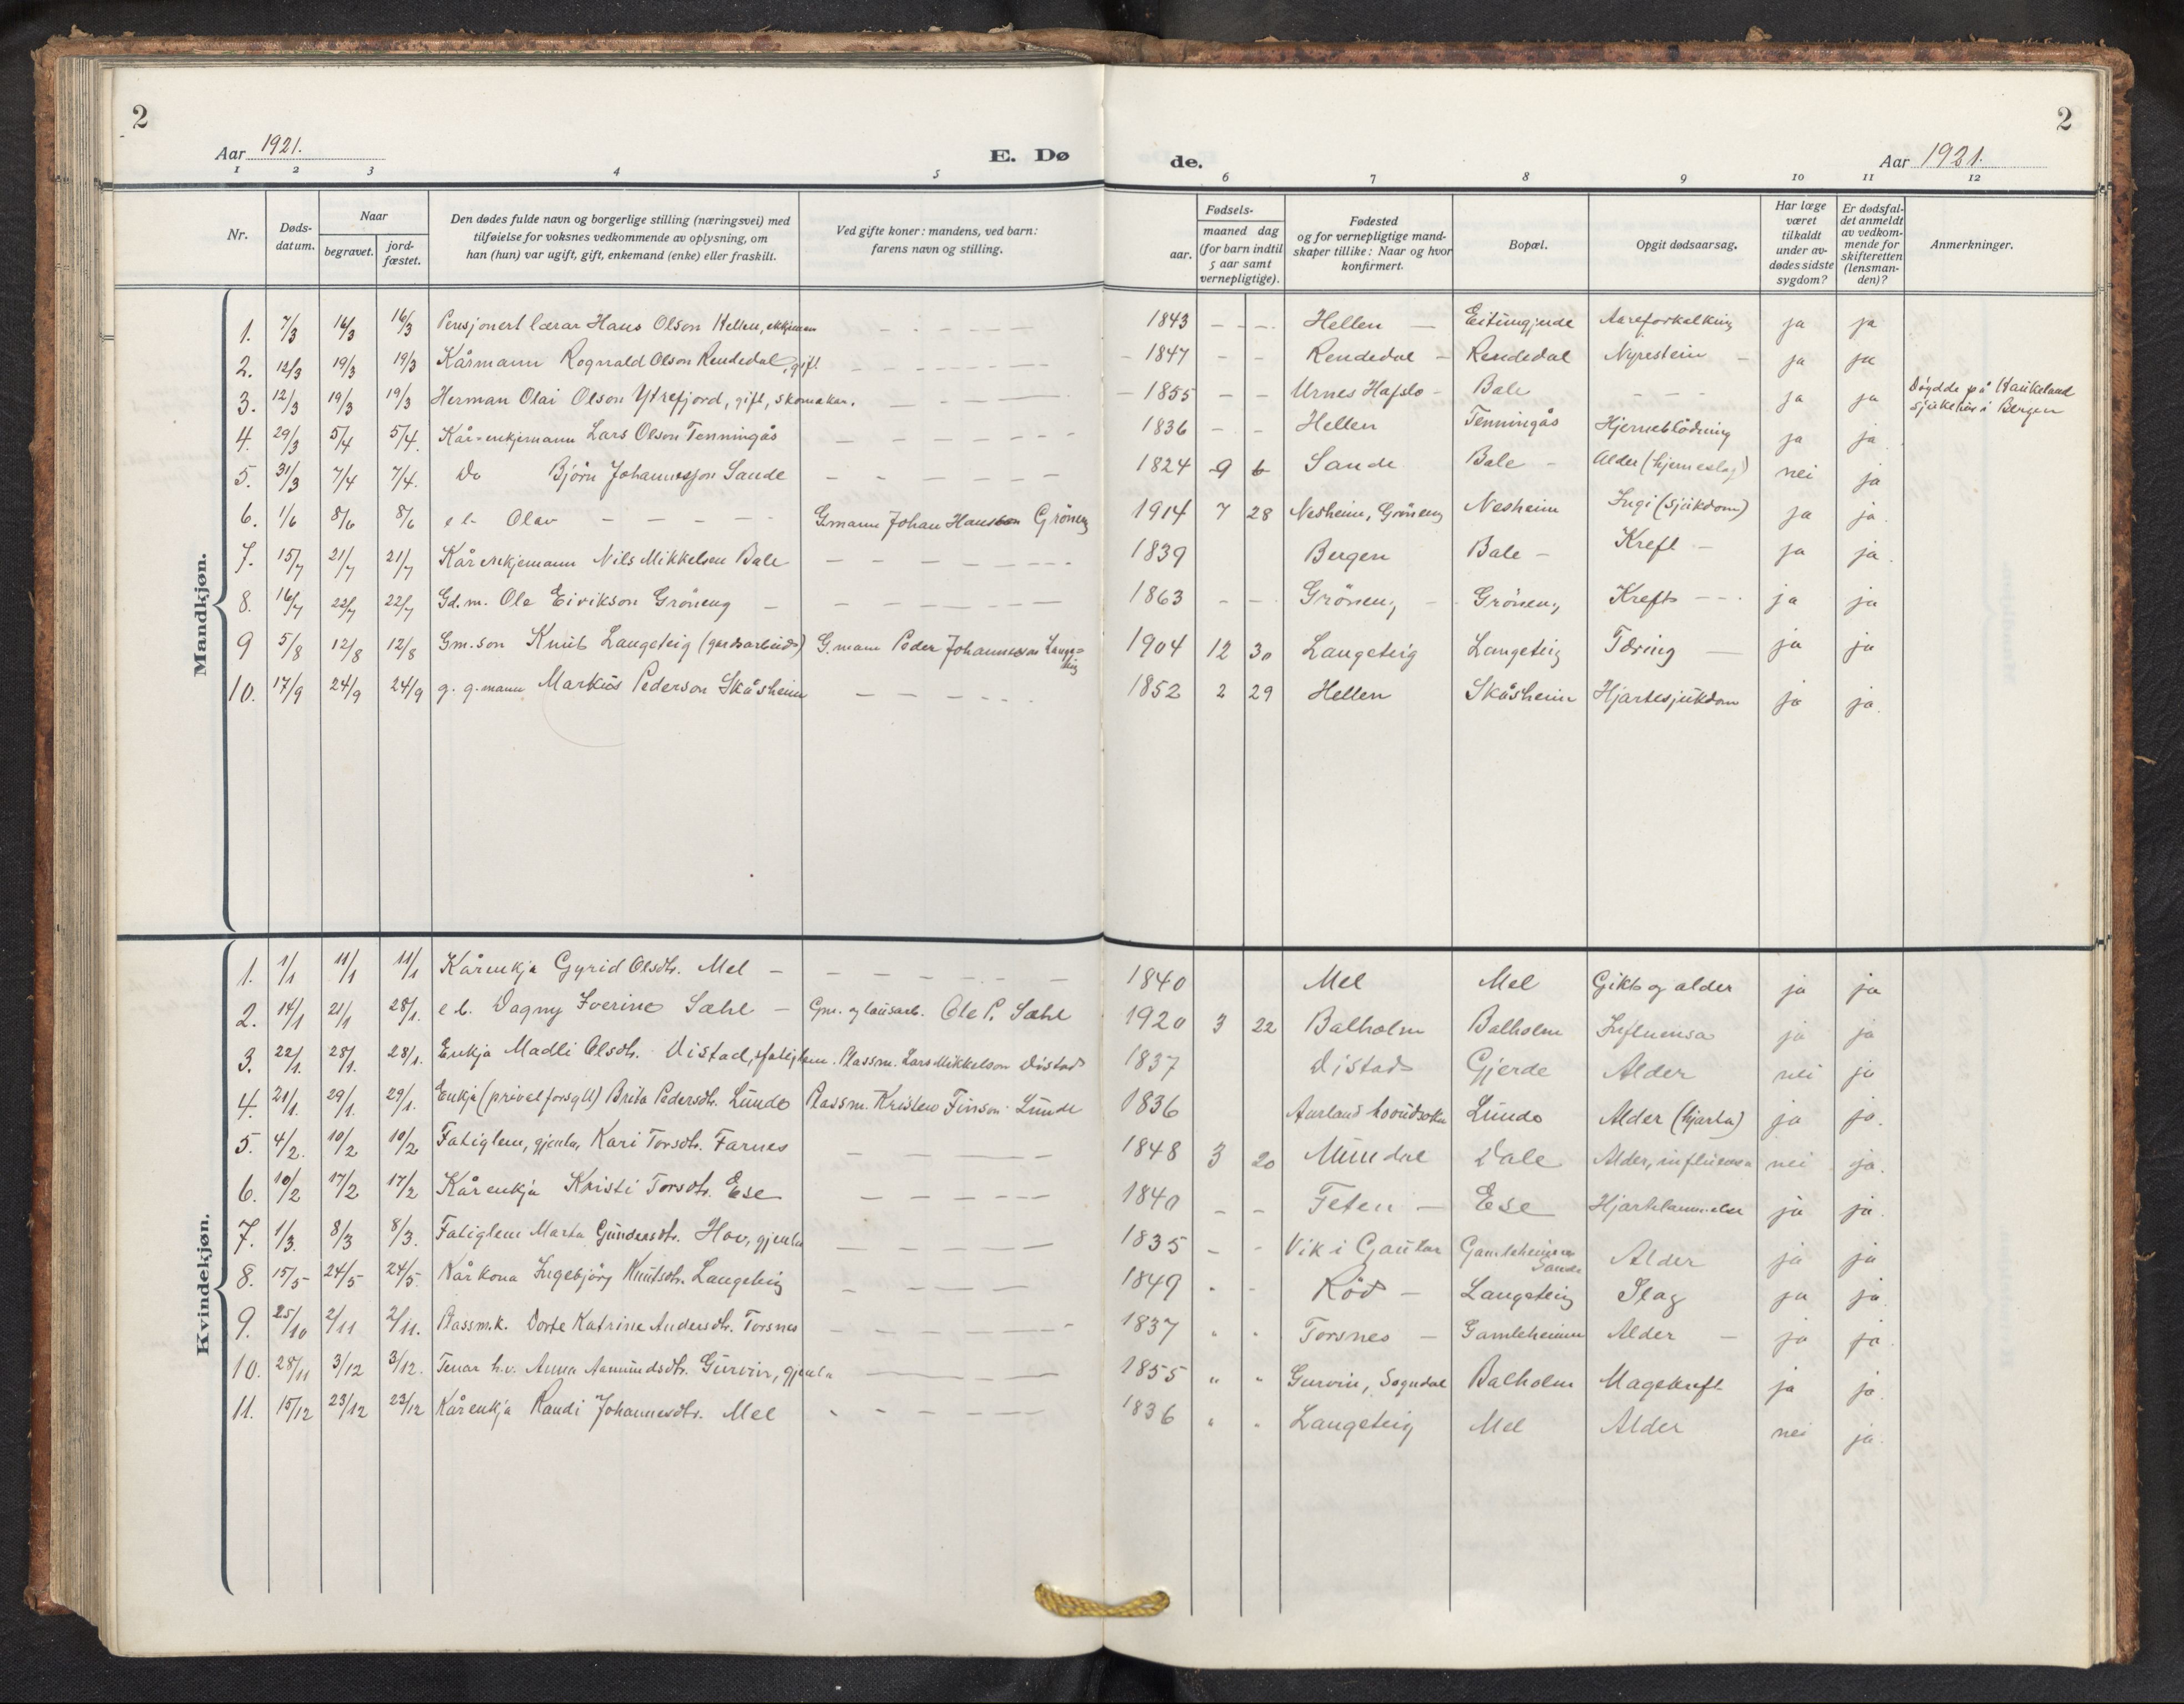 2
2
Aar 1921.
E. Dø
de.
Aar 1921.
1 2 3 4 5 6 7 8 9 10 11 12
Nr.
Døds-
datum.
Naar
begravet.
jord-
fæstet.
Den dødes fulde navn og borgerlige stilling (næringsvei) med
tilføielse for voksnes vedkommende av oplysning, om
han (hun) var ugift, gift, enkemand (enke) eller fraskilt.
Ved gifte koner: mandens, ved barn:
farens navn og stilling.
Fødsels-
aar.
maaned dag
(for barn indtil
5 aar samt
vernepligtige).
Fødested
og for vernepligtige mand-
skaper tillike: Naar og hvor
konfirmert.
Bopæl.
Opgit dødsaarsag.
Har læge
været
tilkaldt
under av-
dødes sidste
sygdom?
Er dødsfal-
det anmeldt
av vedkom-
mende for
skifteretten
(lensman-
den)?
Anmerkninger.
Mandkjøn.
1. 7/3 16/3 16/3 Pensjonert lærar Hans Olson Hellen, - - - - - 1843 - - - Hellen - Eitungjerde Aareforkalking ja ja
2. 12/3 19/3 19/3 Kårmann Rognald Olson Rendedal, gift - - - - - 1847 - - Rendedal - Rendedal Nyrestein - ja ja
3. 12/3 19/3 19/3 Herman Olai Olson Ytrefjord, gift, skomakar. - - - - 1855 - - Urnes Hafslo - Bale - - - ja ja Döydde på Haukeland
sjukehus i Bergen
4. 29/3 5/4 5/4. Kår-enkjemann Lars Olson Tenningås - - - - - 1836 - - Hellen Tenningås Hjerneblödning ja ja.
5. 31/3 7/4 7/4. Do Björn Johannesson Sande - - - - - 1824 9 6 Sande Bale - Alder (hjerneslag) nei ja
6. 1/6 8/6 8/6 e b. Olav - - - - G.mann Johan Hansson Gröneng 1914 7 28 Nesheim, Gröneng Nesheim (sjukdom) ja ja.
7. 15/7 21/7 21/7 Kårenkjemann Nils Mikkelsen Bale - - - - - 1839 Bergen Bale - Kreft - ja ja.
8. 16/7 22/7 22/7 Gd.m. Ole Eirikson Gröneng - - - - - 1863 - - Gröneng - Gröneng Kreft - - ja ja
9 5/8 12/8 12/8 Gm.son Knut Langeteig (gardsarbeid) G.mann Peder Johannesson Lange=
teig 1904 12 30 Langeteig Langeteig Tæring - ja ja
10. 17/9 24/9 24/9 g. g.mann Markus Pederson Skåsheim - - - - 1852 2 29 Hellen Skåsheim Hjartesjukdom ja ja.
Kvindekjøn.
1. 1/1 11/1 11/1 Kårenkja Gyrid Olsdtr. Mel - - - - - 1840 Mel Mel Gikt og alder ja ja
2. 14/1 21/1 28/1. e b. Dagny Iverine Sæhl - Gm. og lausarb. Ole P. Sæhl 1920 3 22 Balholm Balholm Influensa ja ja
3. 22/1. 28/1. 28/1. Enkja Madli Olsdtr. Vistad, fatiglem. Plassm. Lars Mikkelson Vistad 1837 Vistad Gjerde Alder nei ja
4. 21/1. 29/1. 29/1. Enkja (privat forsytt) Brita Pedersdtr. Lunde Plassm. Kristen Finson Lunde 1836 Aurland hovudsokn Lunde Alder (hjarta) ja ja.
5. 4/2. 10/2 10/2 Fatiglem, gjenta, Kari Torsdtr. Farnes - - - - 1848 3 20 Mundal Dale Alder, influensa nei ja.
6. 10/2 17/2 17/2 Kårenkja Kristi Torsdtr. Ese - - - - 1840 - - Feten - Ese Hjartelammelse ja ja.
7. 1/3. 8/3 8/3. Fatiglem Marta Gundersdtr. Hov, gjenta - - - - 1835 - - Vik i Gaular Gamleheimen
Sande Alder ja ja
8. 15/5 24/5 24/5 Kårkona Ingebjörg Knutsdtr. Langeteig - - - - 1849 - - Röd - Langeteig Slag ja ja.
9. 25/10 2/11 2/11. Plassm.k. Dorte Katrine Andersdtr. Torsnes - - - - 1837 " " Torsnes - Gamleheimen Alder - ja ja.
10. 28/11 3/12 3/12. Tenar h.v. Anna Aamundsdtr. Gurvin, gjenta - - - - 1855 " " Gurvin, Sogndal Balholm Magekreft ja ja.
11. 15/12 23/12 23/12 Kårenkja Randi Johannesdtr. Mel - - - - 1836 " " Langeteig Mel Alder nei ja.